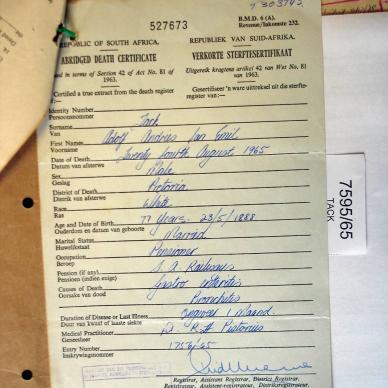 T 303743
B.M.D. 6 (A).
527673
Revenue/Inkomste 232.
REPUBLIC OF SOUTH AFRICA.
REPUBLIEK VAN SUID-AFRIKA.
ABRIDGED DEATH CERTIFICATE
VERKORTE STERFTESERTIFIKAAT
Issued in terms of Section 42 of Act No. 81 of 1963.
Uitgereik kragtens artikel 42 van Wet No. 81 van 1963.
Certified a true extract from the death register of:—
Gesertifiseer 'n ware uittreksel uit die sterfte-register van:—
Identity Number
Persoonsnommer
Surname
Van
Tack
First Names
Voorname
Adolf Andries Jan Emil
Date of Death
Datum van afsterwe
Twenty fourth August 1965
Sex
Geslag
Male
District of Death
Distrik van afsterwe
Pretoria
Race
Ras
White
Age and Date of Birth
Ouderdom en datum van geboorte
77 Years. 23/5/1888
Marital Status
Huwelikstaat
Married
Occupation
Beroep
Pensioner
Pension (if any)
Pensioen (indien enige)
S.A. Railways
Causes of Death
Oorsake van dood
Gastro interitis
Bronchitis
Duration of Disease or Last Illness
Duur van kwaal of laaste siekte
Ongeveer 1 Maand
Medical Practitioner
Geneesheer
Dr. R.H. Pistorius
Entry Number
Inskrywingsnommer
1756/65
Registrar, Assistant Registrar, District Registrar,
Registrateur, Assistent-registrateur, Distriksregistrateur,
7595/65
TACK